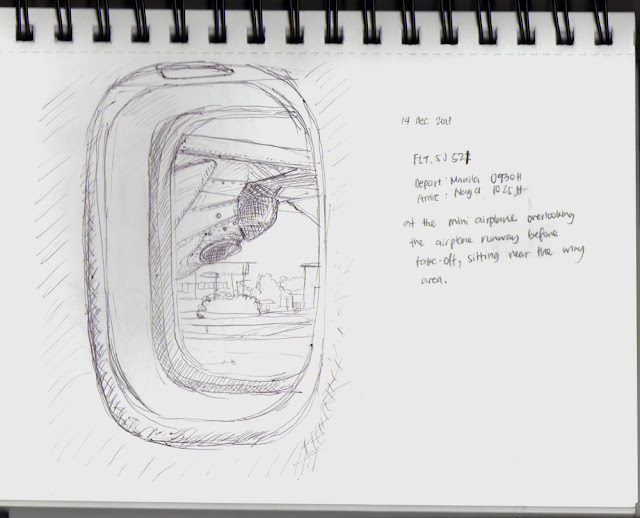 14 Dec 2011
FLT. 5J 521
Depart: Manila 0930H
Arrive: Naga 1025H
at the mini airplane overlooking
the airplane runway before
take-off, sitting near the wing
area.